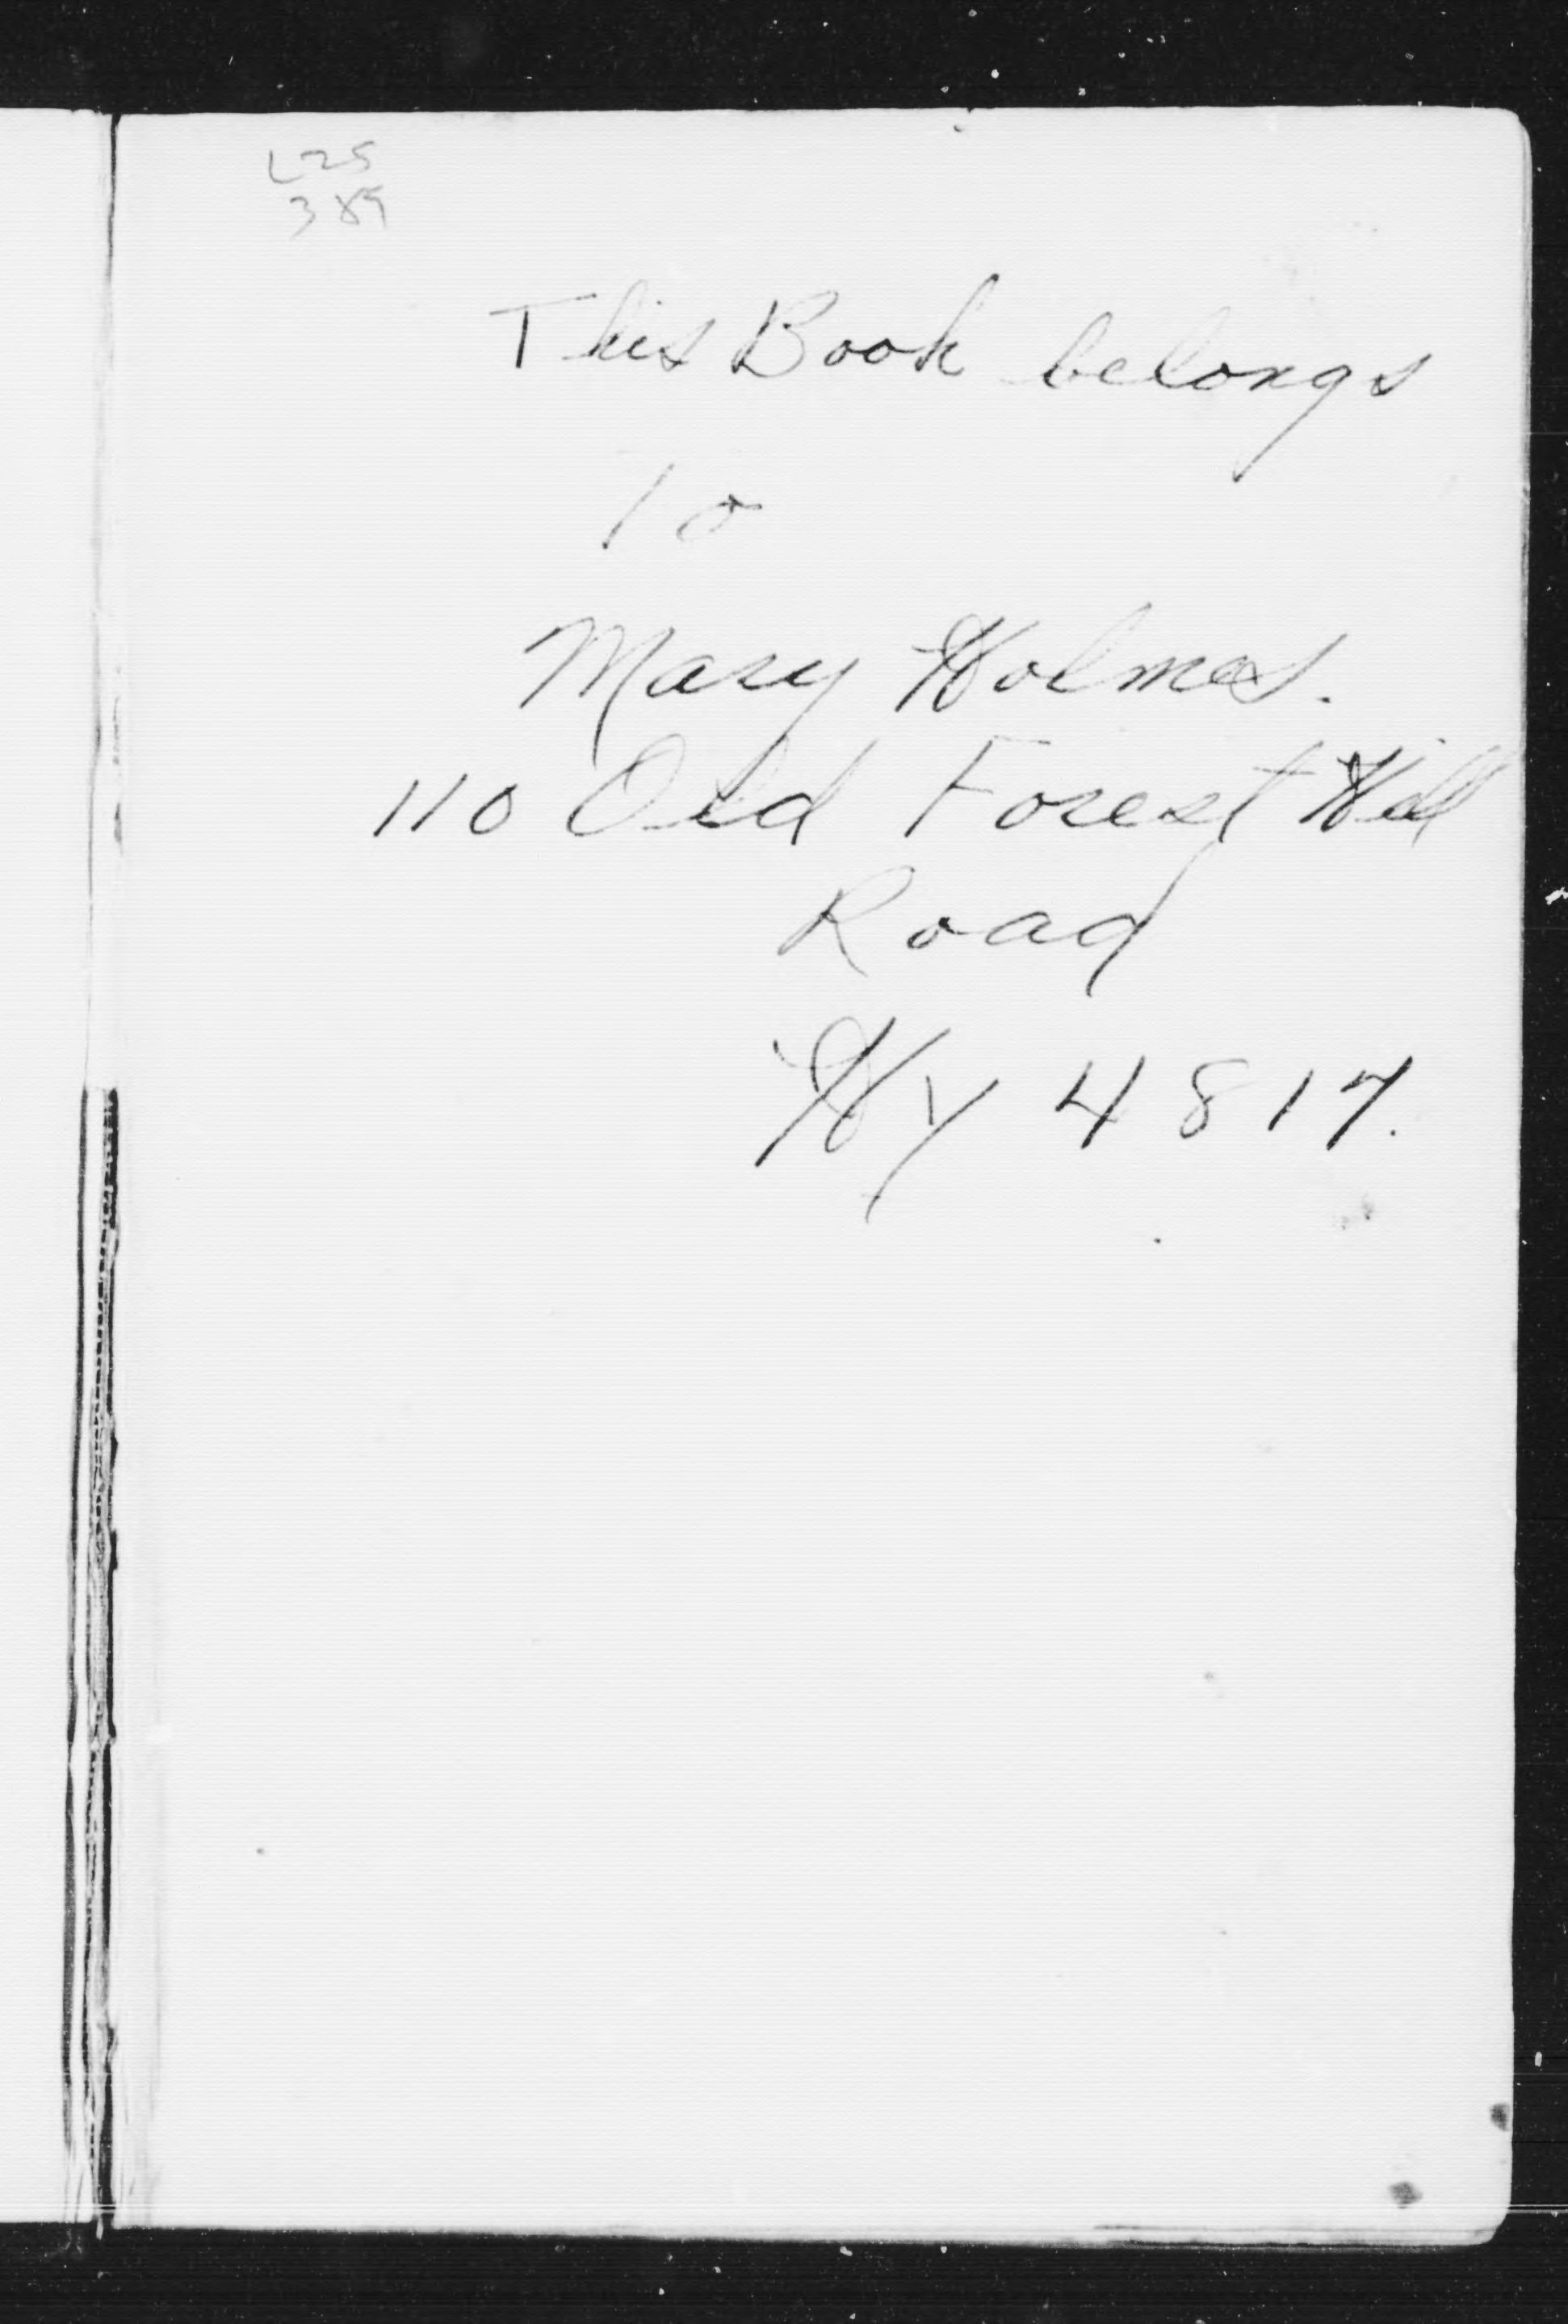 L25
389
This Book belongs
To
Mary Holmes.
110 Old Forest Hill
Road
Hy 4817.